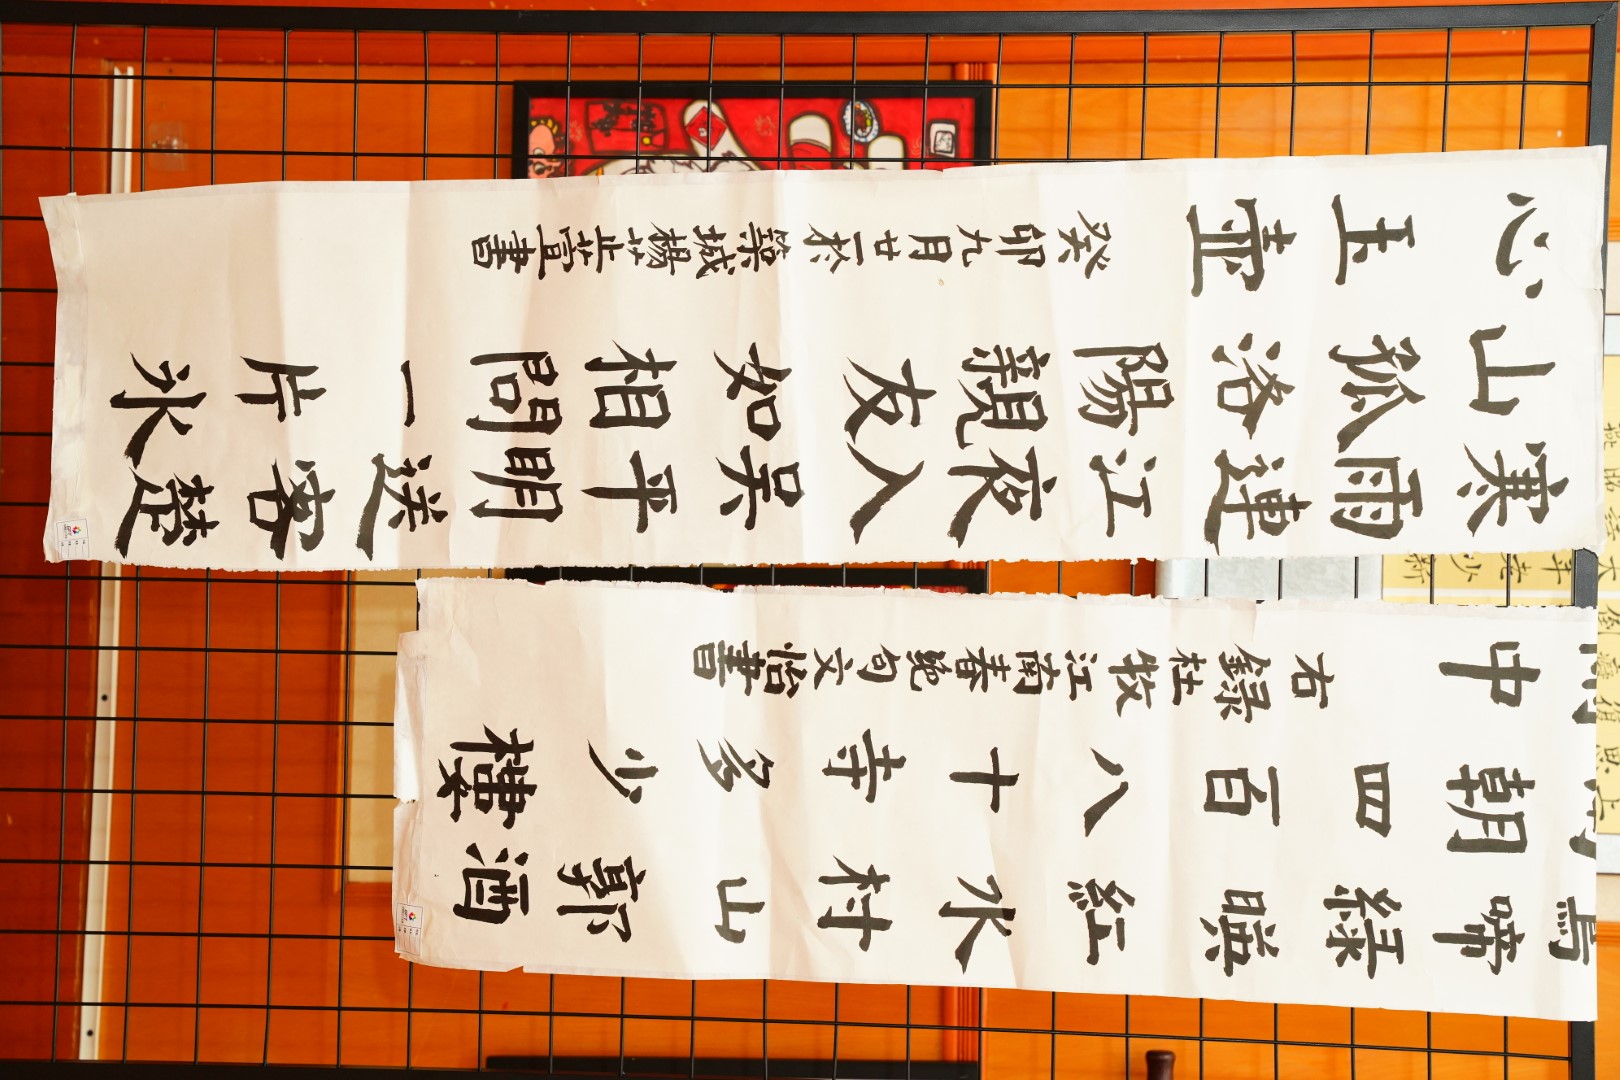 寒雨連江夜入吳平明送客楚
山孤洛陽親友如相問一片冰
心玉壺
癸卯九月廿一於築城楊芷萱書
啼綠映紅水村山郭酒
朝四百八十寺多少樓
中
右錄杜牧江南春絕句文怡書